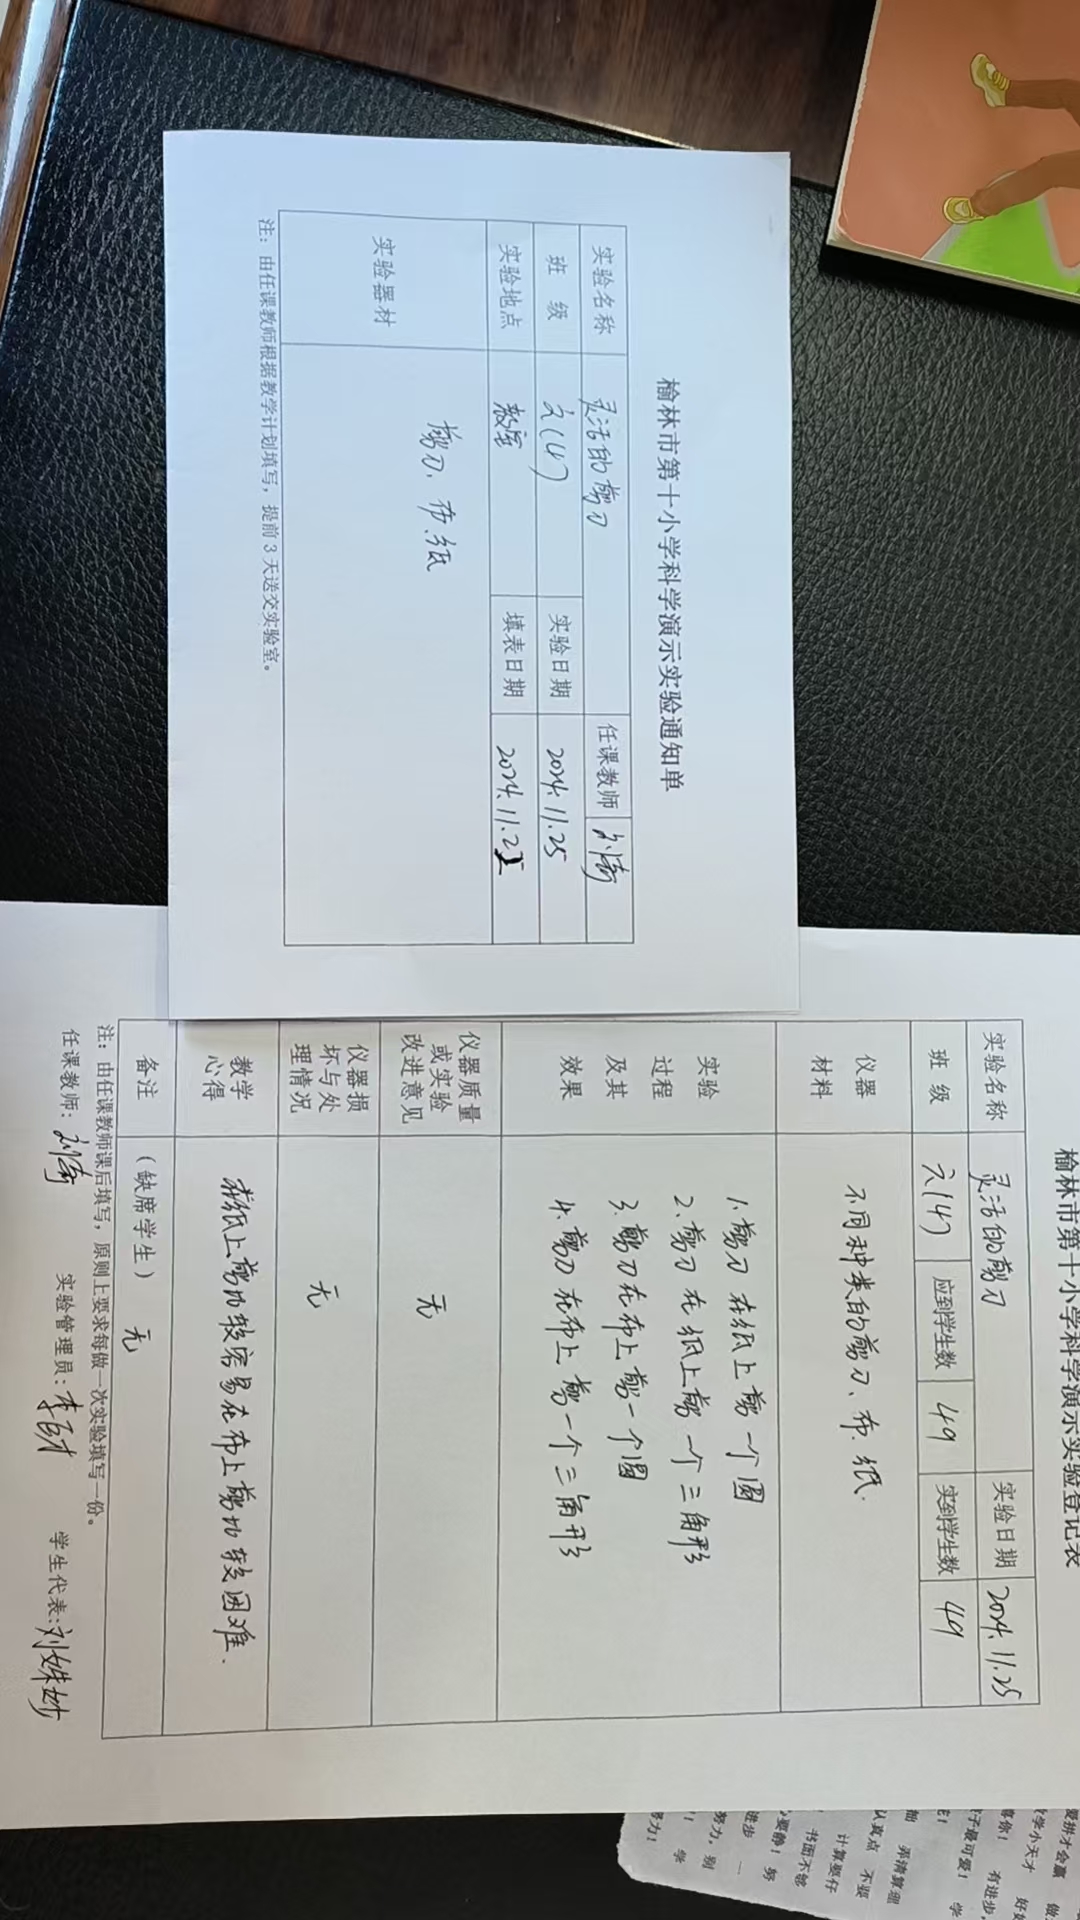 榆林市第十小学科学演示实验通知单
实验名称 灵活的剪刀 任课教师
班 级 六(4) 实验日期 2024.11.25
实验地点 教室 填表日期 2024.11.2
实验器材 剪刀、布、纸
注：由任课教师根据教学计划填写，提前3天送交实验室。
榆林市第十小学科学演示实验登记表
实验名称 灵活的剪刀 实验日期 2024.11.25
班 级 六(4) 应到学生数 49 实到学生数 49
仪器材料 不同种类的剪刀、布、纸.
实验过程及其效果
1.剪刀在纸上剪一个圆
2.剪刀在纸上剪一个三角形
3.剪刀在布上剪一个圆
4.剪刀在布上剪一个三角形
仪器质量或实验改进意见 无
仪器损坏与处理情况 无
教学心得 在纸上剪比较容易在布上剪比较困难.
备注 （缺席学生）无
注：由任课教师课后填写，原则上要求每做一次实验填写一份。
任课教师： 实验管理员： 学生代表：刘姝妙
爱拼才会赢 做
学小天才
有进步，
子最可爱！ 学
弄清算理
认真点 不要
计算要仔
书面不够
要静！ 努
进步 一
努力，别
！ 学
努力！